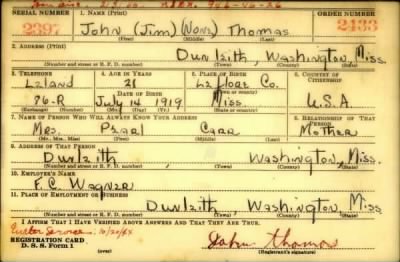 SERIAL NUMBER 1. NAME (Print) ORDER NUMBER
2397 John (Jim) (None) Thomas 2433
(First) (Middle) (Last)
2. ADDRESS (Print)
Dunleith, Washington, Miss.
(Number and street or R. F. D. number) (Town) (County) (State)
3. TELEPHONE 4. AGE IN YEARS 5. PLACE OF BIRTH 6. COUNTRY OF CITIZENSHIP
Leland 21 Leflore Co.
DATE OF BIRTH
86-R July 14 1919 Miss. U.S.A.
(Exchange) (Number) (Mo.) (Day) (Yr.) (State or country)
7. NAME OF PERSON WHO WILL ALWAYS KNOW YOUR ADDRESS 8. RELATIONSHIP OF THAT PERSON
Mrs. Pearl Carr Mother
(Mr., Mrs., Miss) (First) (Middle) (Last)
9. ADDRESS OF THAT PERSON
Dunleith, Washington, Miss.
(Number and street or R. F. D. number) (Town) (County) (State)
10. EMPLOYER'S NAME
F.C. Wagner
11. PLACE OF EMPLOYMENT OR BUSINESS
Dunleith, Washington, Miss
(Number and street or R. F. D. number) (Town) (County) (State)
I AFFIRM THAT I HAVE VERIFIED ABOVE ANSWERS AND THAT THEY ARE TRUE.
REGISTRATION CARD
D. S. S. Form 1 (Registrant's signature)
John Thomas